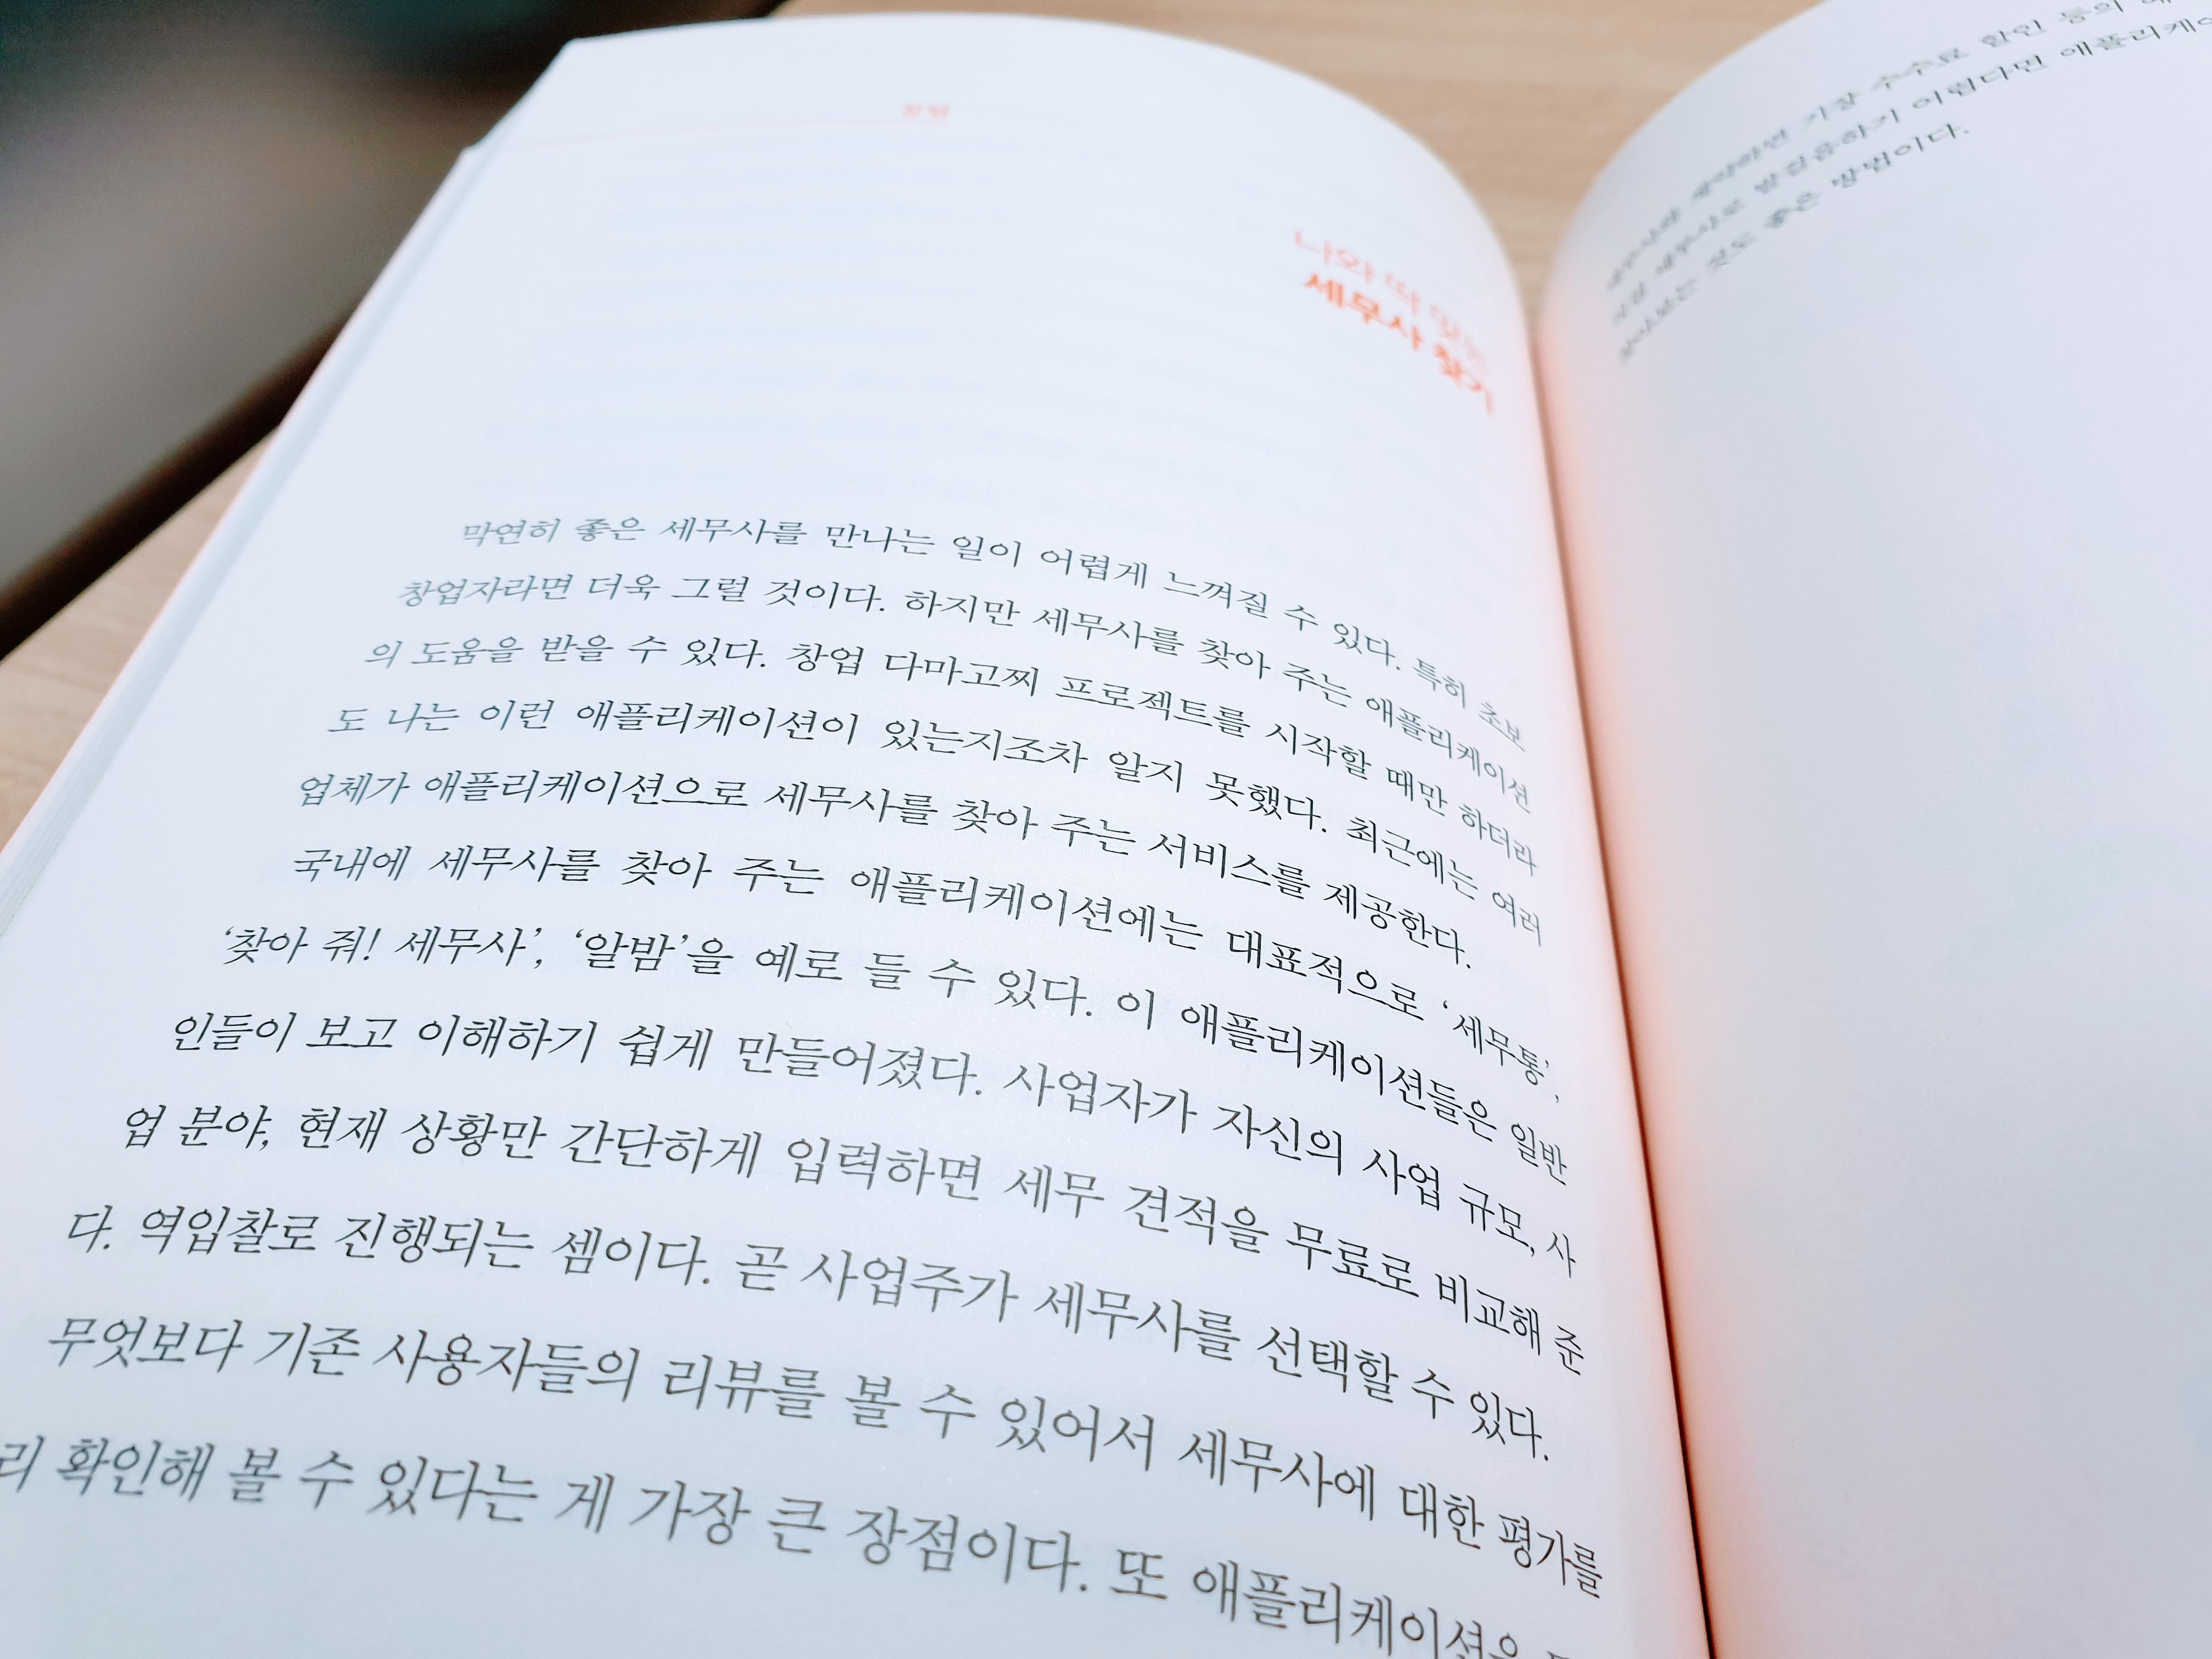 부록
나와 딱 맞는
세무사 찾기
막연히 좋은 세무사를 만나는 일이 어렵게 느껴질 수 있다. 특히 초보
창업자라면 더욱 그럴 것이다. 하지만 세무사를 찾아 주는 애플리케이션
의 도움을 받을 수 있다. 창업 다마고찌 프로젝트를 시작할 때만 하더라
도 나는 이런 애플리케이션이 있는지조차 알지 못했다. 최근에는 여러
업체가 애플리케이션으로 세무사를 찾아 주는 서비스를 제공한다.
국내에 세무사를 찾아 주는 애플리케이션에는 대표적으로 ‘세무통’,
‘찾아 줘! 세무사’, ‘알밤’을 예로 들 수 있다. 이 애플리케이션들은 일반
인들이 보고 이해하기 쉽게 만들어졌다. 사업자가 자신의 사업 규모, 사
업 분야, 현재 상황만 간단하게 입력하면 세무 견적을 무료로 비교해 준
다. 역입찰로 진행되는 셈이다. 곧 사업주가 세무사를 선택할 수 있다.
무엇보다 기존 사용자들의 리뷰를 볼 수 있어서 세무사에 대한 평가를
리 확인해 볼 수 있다는 게 가장 큰 장점이다. 또 애플리케이션을
세무사와 계약하면 기장 수수료 할인 등의
세무사로 발걸음하기 어렵다면 애플리케이
찾아보는 것도 좋은 방법이다.